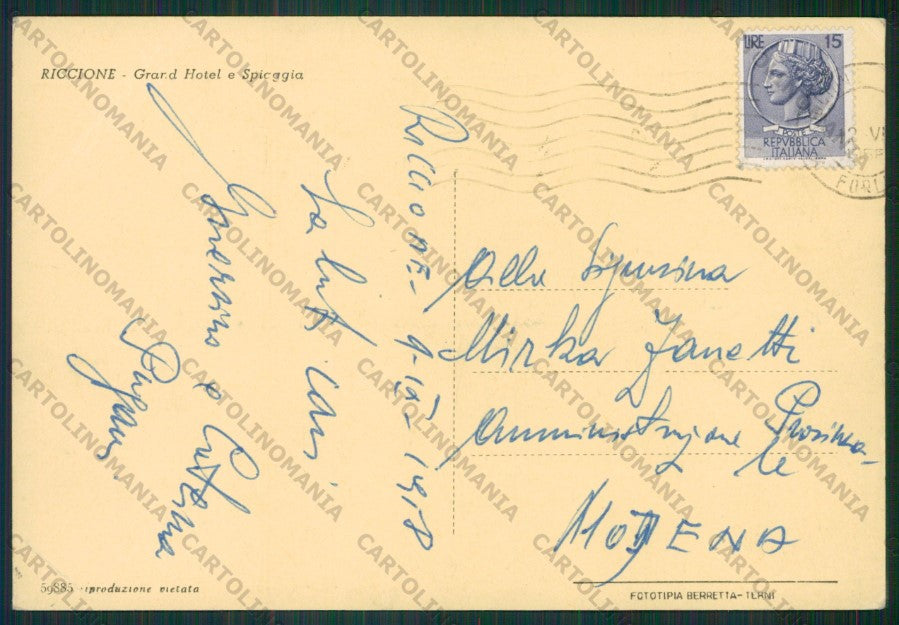 RICCIONE - Grand Hotel e Spiaggia
LIRE 15
POSTE
REPVBBLICA
ITALIANA
FORLI
Riccione -
Saluti cari
Alla Signorina
Mirka Zanetti
Amministrazione Provincia-
le
MODENA
59885 riproduzione vietata
FOTOTIPIA BERRETTA - TERNI
CARTOLINOMANIA